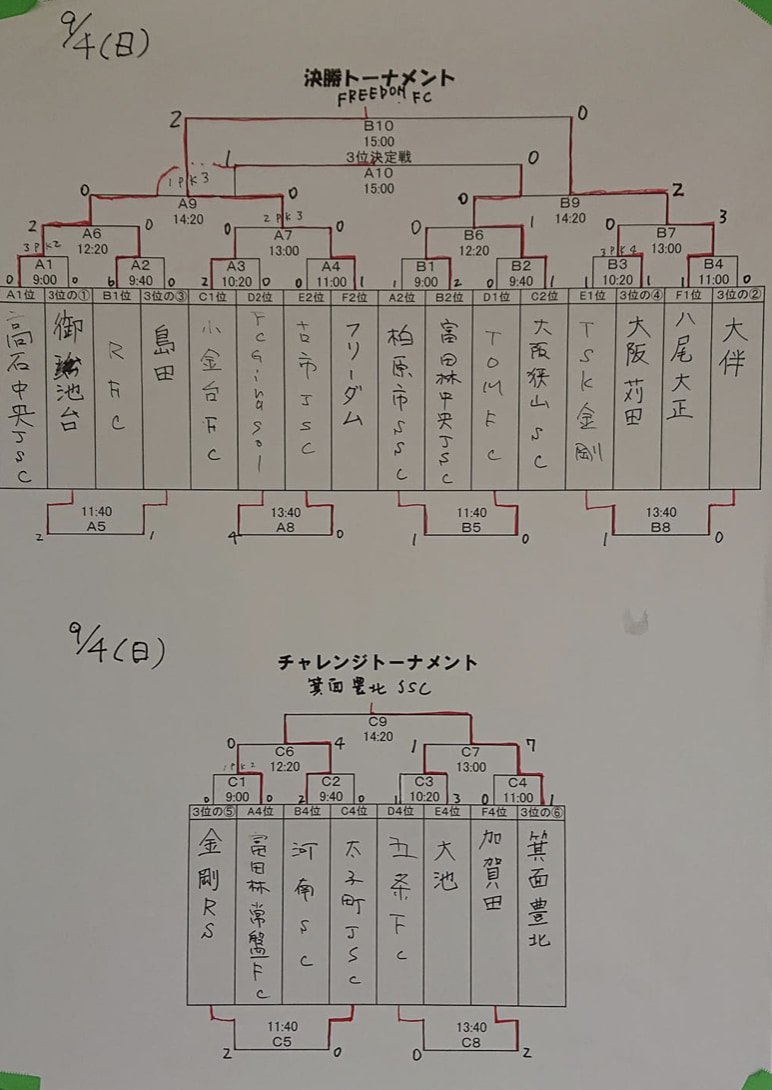 9/4(日)
決勝トーナメント
FREEDOM FC
2 0
B10
15:00
3位決定戦
1 0
A10
15:00
1PK3
0 A9 0 0 B9 2
14:20 14:20
2 A6 0 0 2PK3 A7 0 0 B6 1 0 B7 3
12:20 13:00 12:20 13:00
3PK2 3PK4
A1 A2 A3 A4 B1 B2 B3 B4
0 9:00 0 6 9:40 0 2 10:20 0 0 11:00 1 1 9:00 2 0 9:40 1 1 10:20 1 1 11:00 0
A1位 3位の① B1位 3位の③ C1位 D2位 E2位 F2位 A2位 B2位 D1位 C2位 E1位 3位の④ F1位 3位の②
高石中央JSC
御池台
RFC
島田
小金台FC
FC Ginga501
古市JSC
フリーダム
柏原市SSC
富田林中央JSC
TOMFC
大阪狭山SC
TSK金剛
大阪苅田
八尾大正
大伴
11:40 13:40 11:40 13:40
2 A5 1 4 A8 0 1 B5 0 1 B8 0
9/4(日)
チャレンジトーナメント
箕面豊北SSC
C9
14:20
0 C6 4 1 C7 7
12:20 13:00
1PK2
C1 C2 C3 C4
0 9:00 0 2 9:40 0 1 10:20 3 0 11:00 1
3位の⑤ A4位 B4位 C4位 D4位 E4位 F4位 3位の⑥
金剛RS
富田林常盤FC
河南SC
太子町JSC
五条FC
大池
加賀田
箕面豊北
11:40 13:40
2 C5 0 0 C8 2